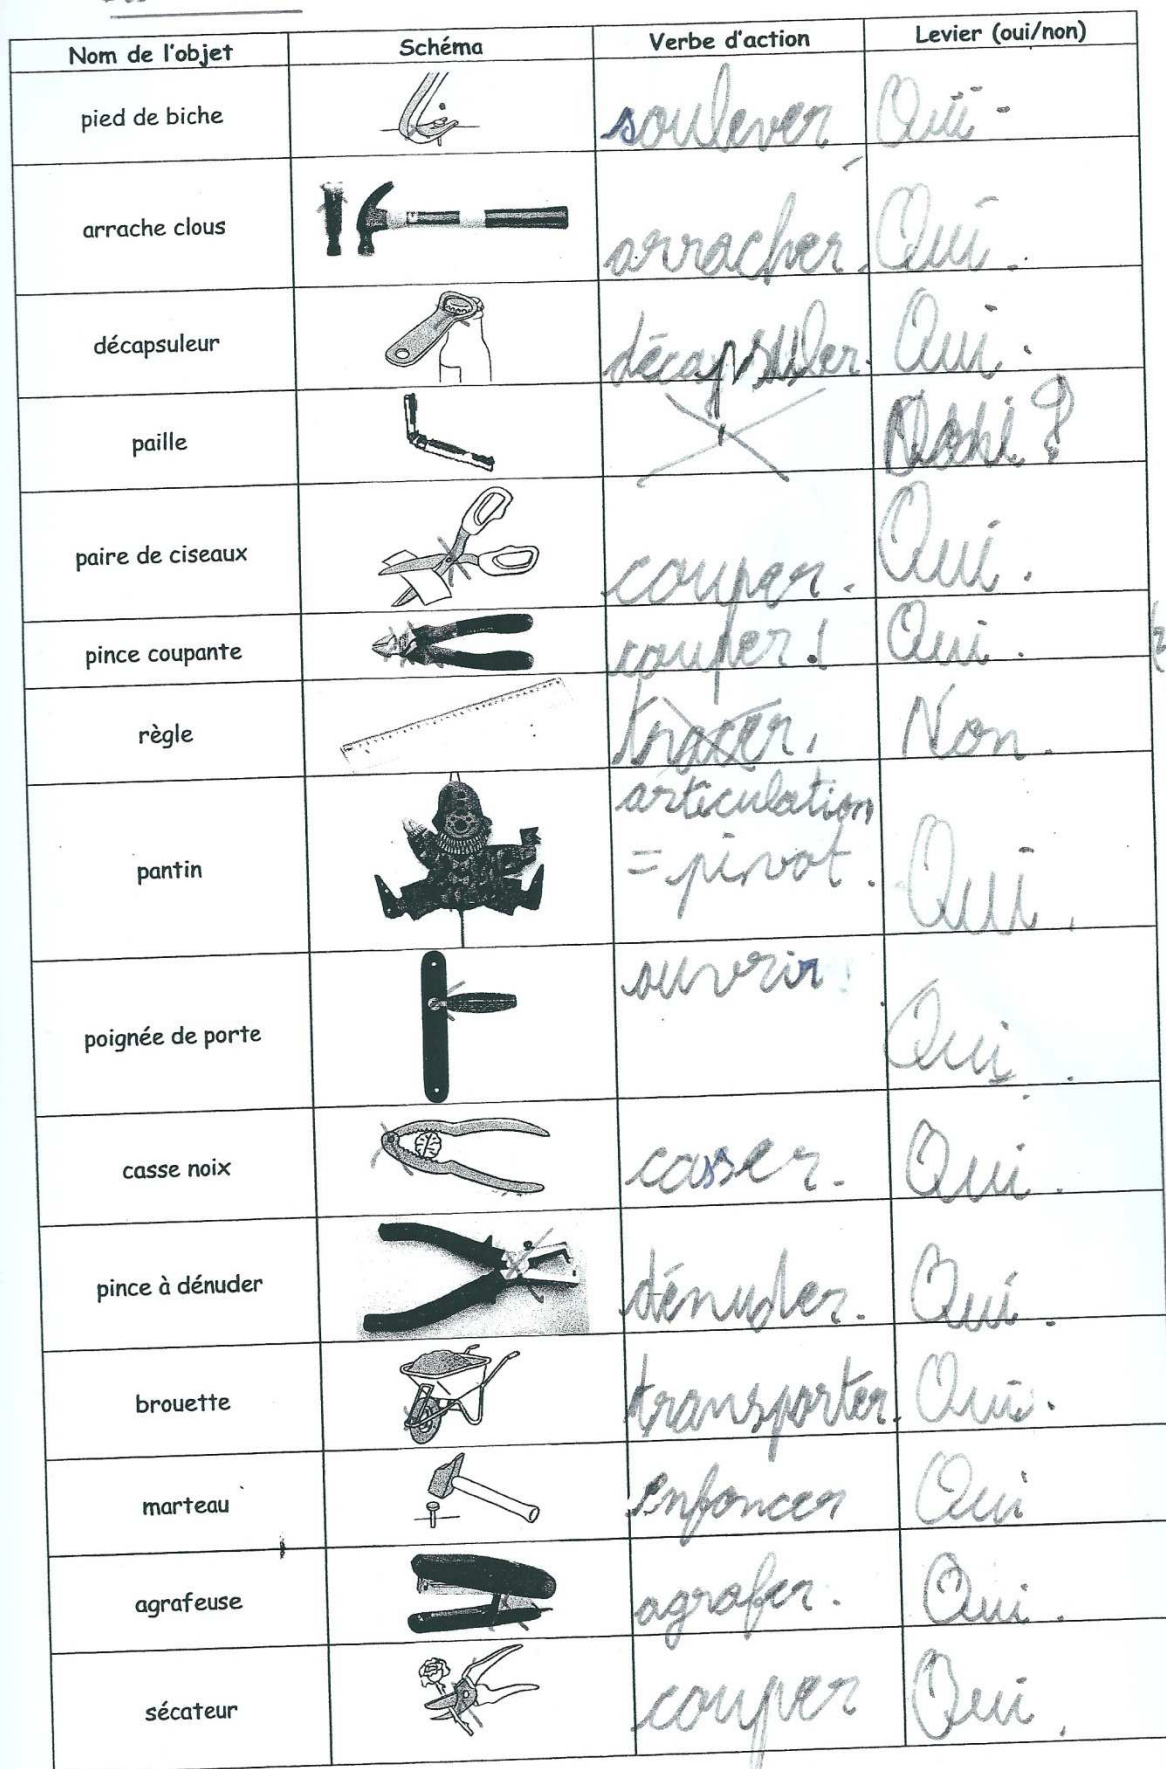 Nom de l'objet Schéma Verbe d'action Levier (oui/non)
pied de biche soulever Oui -
arrache clous arracher. Oui.
décapsuleur décapsuler. Oui.
paille ?
paire de ciseaux couper. Oui.
pince coupante couper! Oui.
règle tracer. Non.
articulation
pantin = pivot. Oui.
ouvrir
poignée de porte Oui.
casse noix casser. Oui.
pince à dénuder dénuder. Oui.
brouette transporter. Oui.
marteau enfoncer Oui
agrafeuse agrafer. Oui.
sécateur couper Oui.